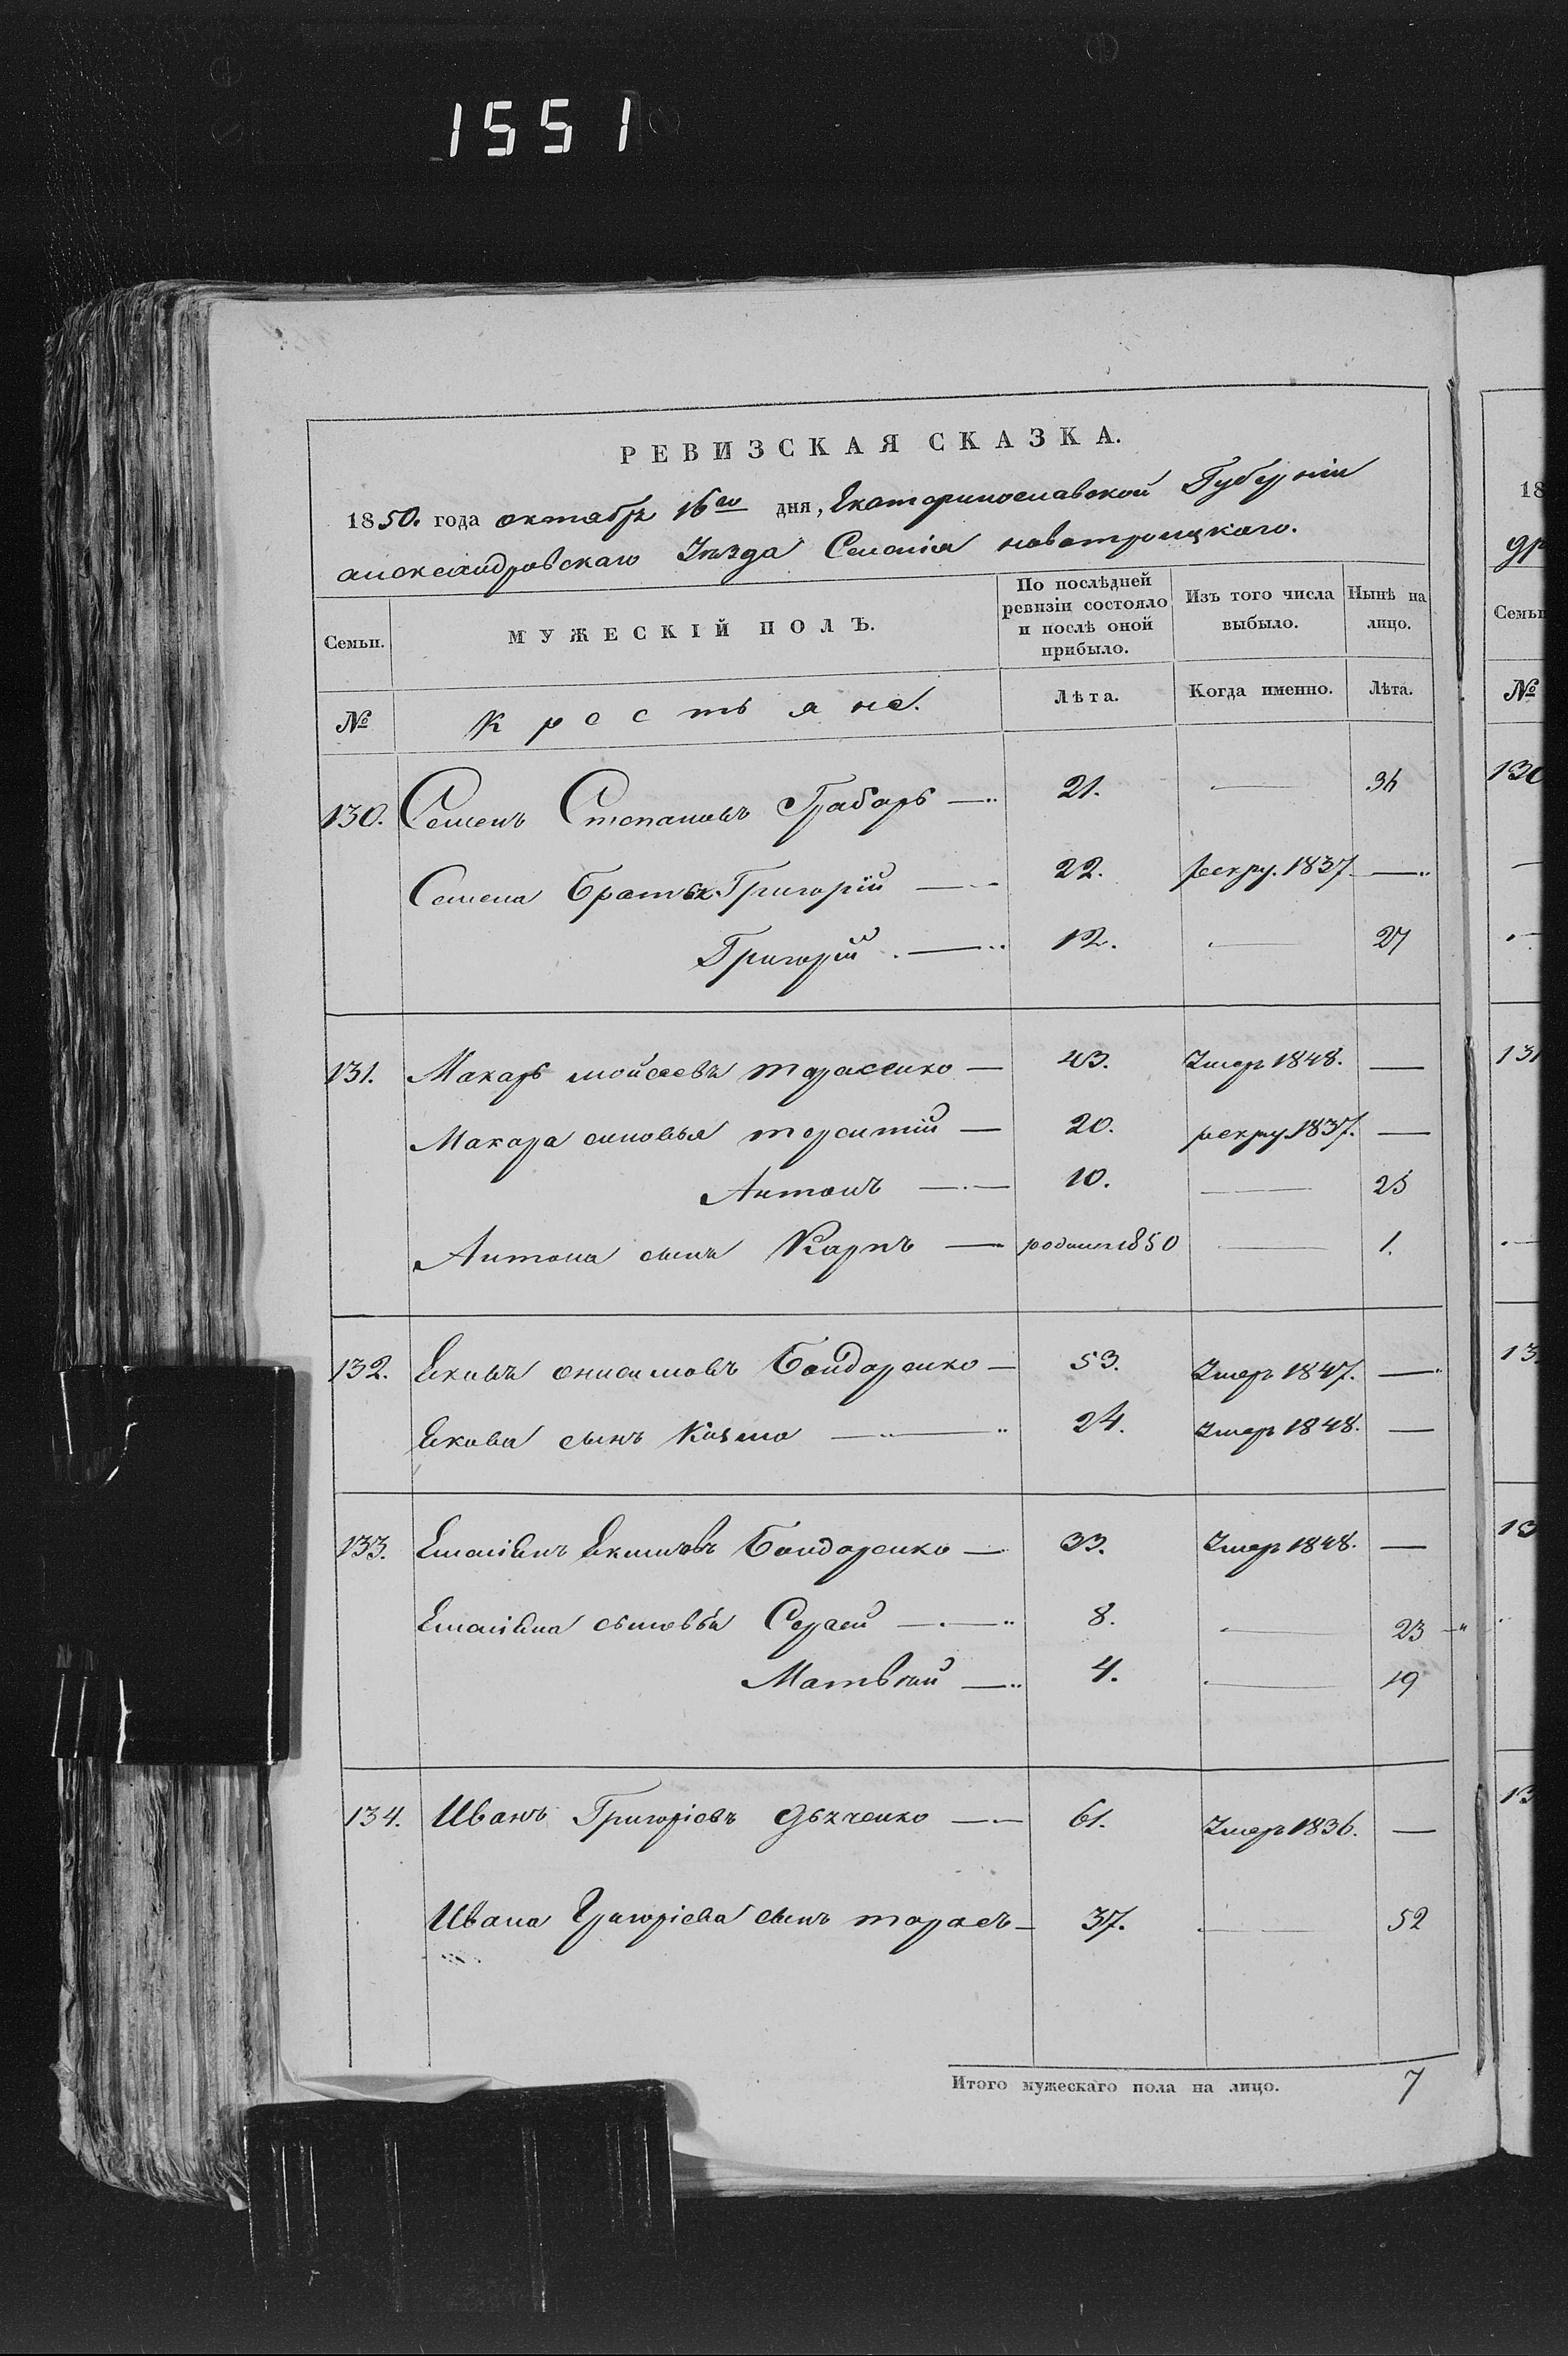 1551
РЕВИЗСКАЯ СКАЗКА.
1850. года октября 16го дня, Екатеринославской Губерніи
александровскаго Уезда Селенія новотроицкаго.
Семьи. МУЖЕСКІЙ ПОЛЪ. По послѣдней ревизіи состояло и послѣ оной прибыло. Изъ того числа выбыло. Нынѣ на лицо.
№ крестьяне. Лѣта. Когда именно. Лѣта.
130. Семенъ Степановъ Грабарь 21. — 36
Семена Братья Григорій 22. рекру. 1837 —
Григорій 12. — 27
131. Макаръ мойсеевъ тарасенко — 43. Умеръ 1848. —
Макара синовья терентій — 20. рекру. 1837. —
Антонъ — 10. — 25
Антона сынъ Карпъ — родился 1850 — 1.
132. Екимъ онисимовъ Бондаренко — 53. Умеръ 1847. —
Екима сынъ Козма — 24. Умеръ 1848. —
133. Емаліянъ Екимовъ Бондаренко — 33. Умеръ 1848. —
Емаліяна сыновья Сергей — 8. — 23
Матвѣй — 4. — 19
134. Иванъ Григоріевъ Дяченко — 61. Умеръ 1836. —
Ивана Григоріева сынъ тарасъ — 37. — 52
Итого мужескаго пола на лицо. 7
18
др
Семьи
№
130
131
13
13
13